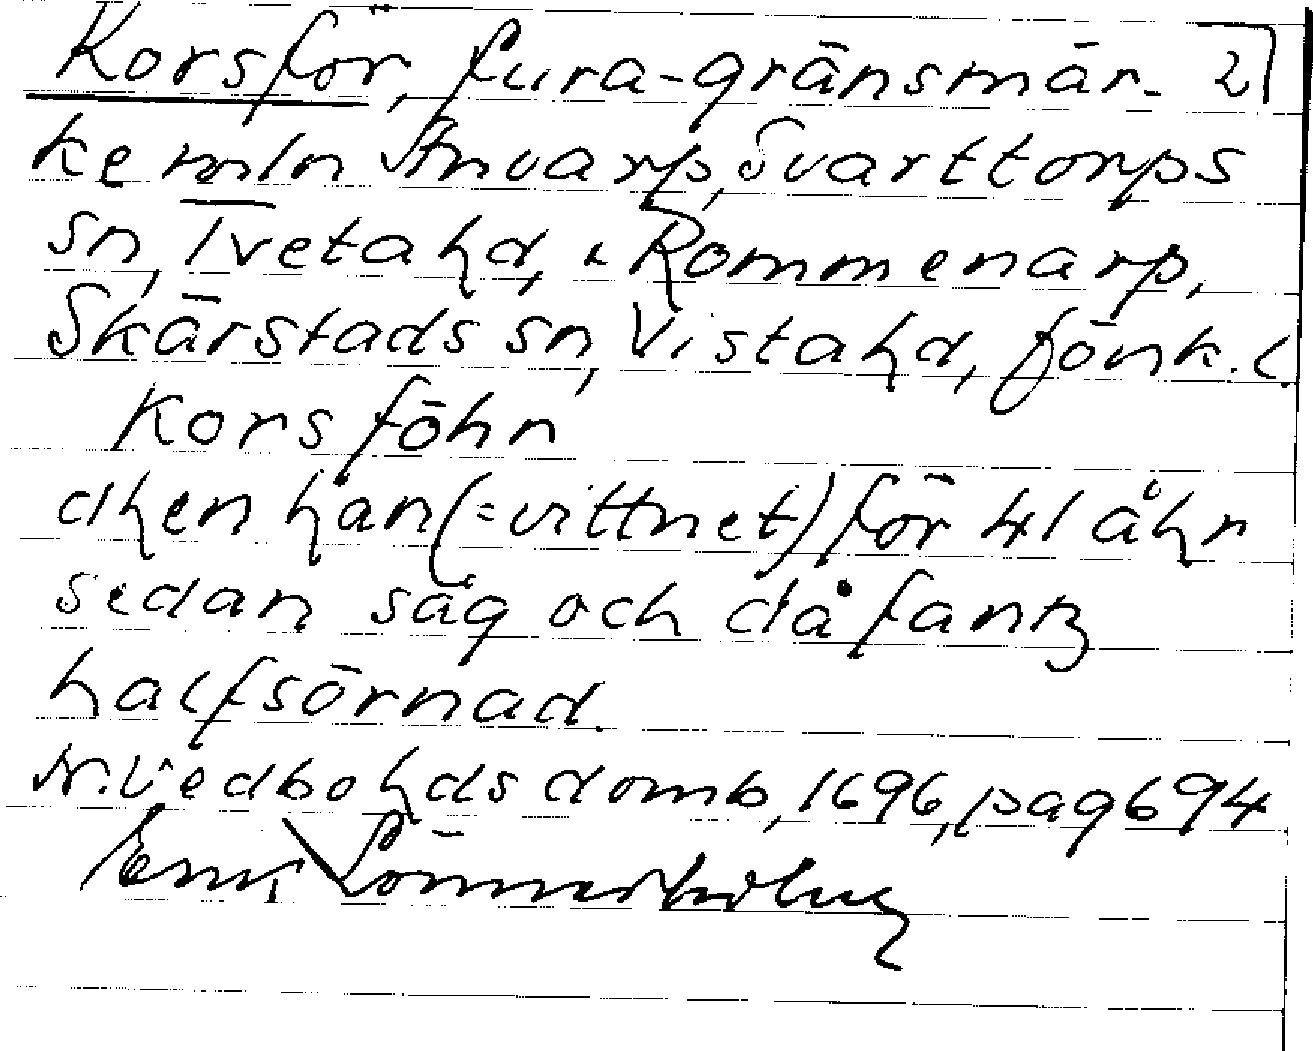 Korsför, fura-gränsmär- 2
ke mln Stnvarp, Svarttorps
sn, Tveta hd, & Rommenarp,
Skärstads sn, Vista hd, fönk. l.
Korsföhn
dhen han (=vittnet) för 41 åhr
sedan såg och då fantz
halfsörnad.
N. Vedbo hds domb, 1696, pag 694